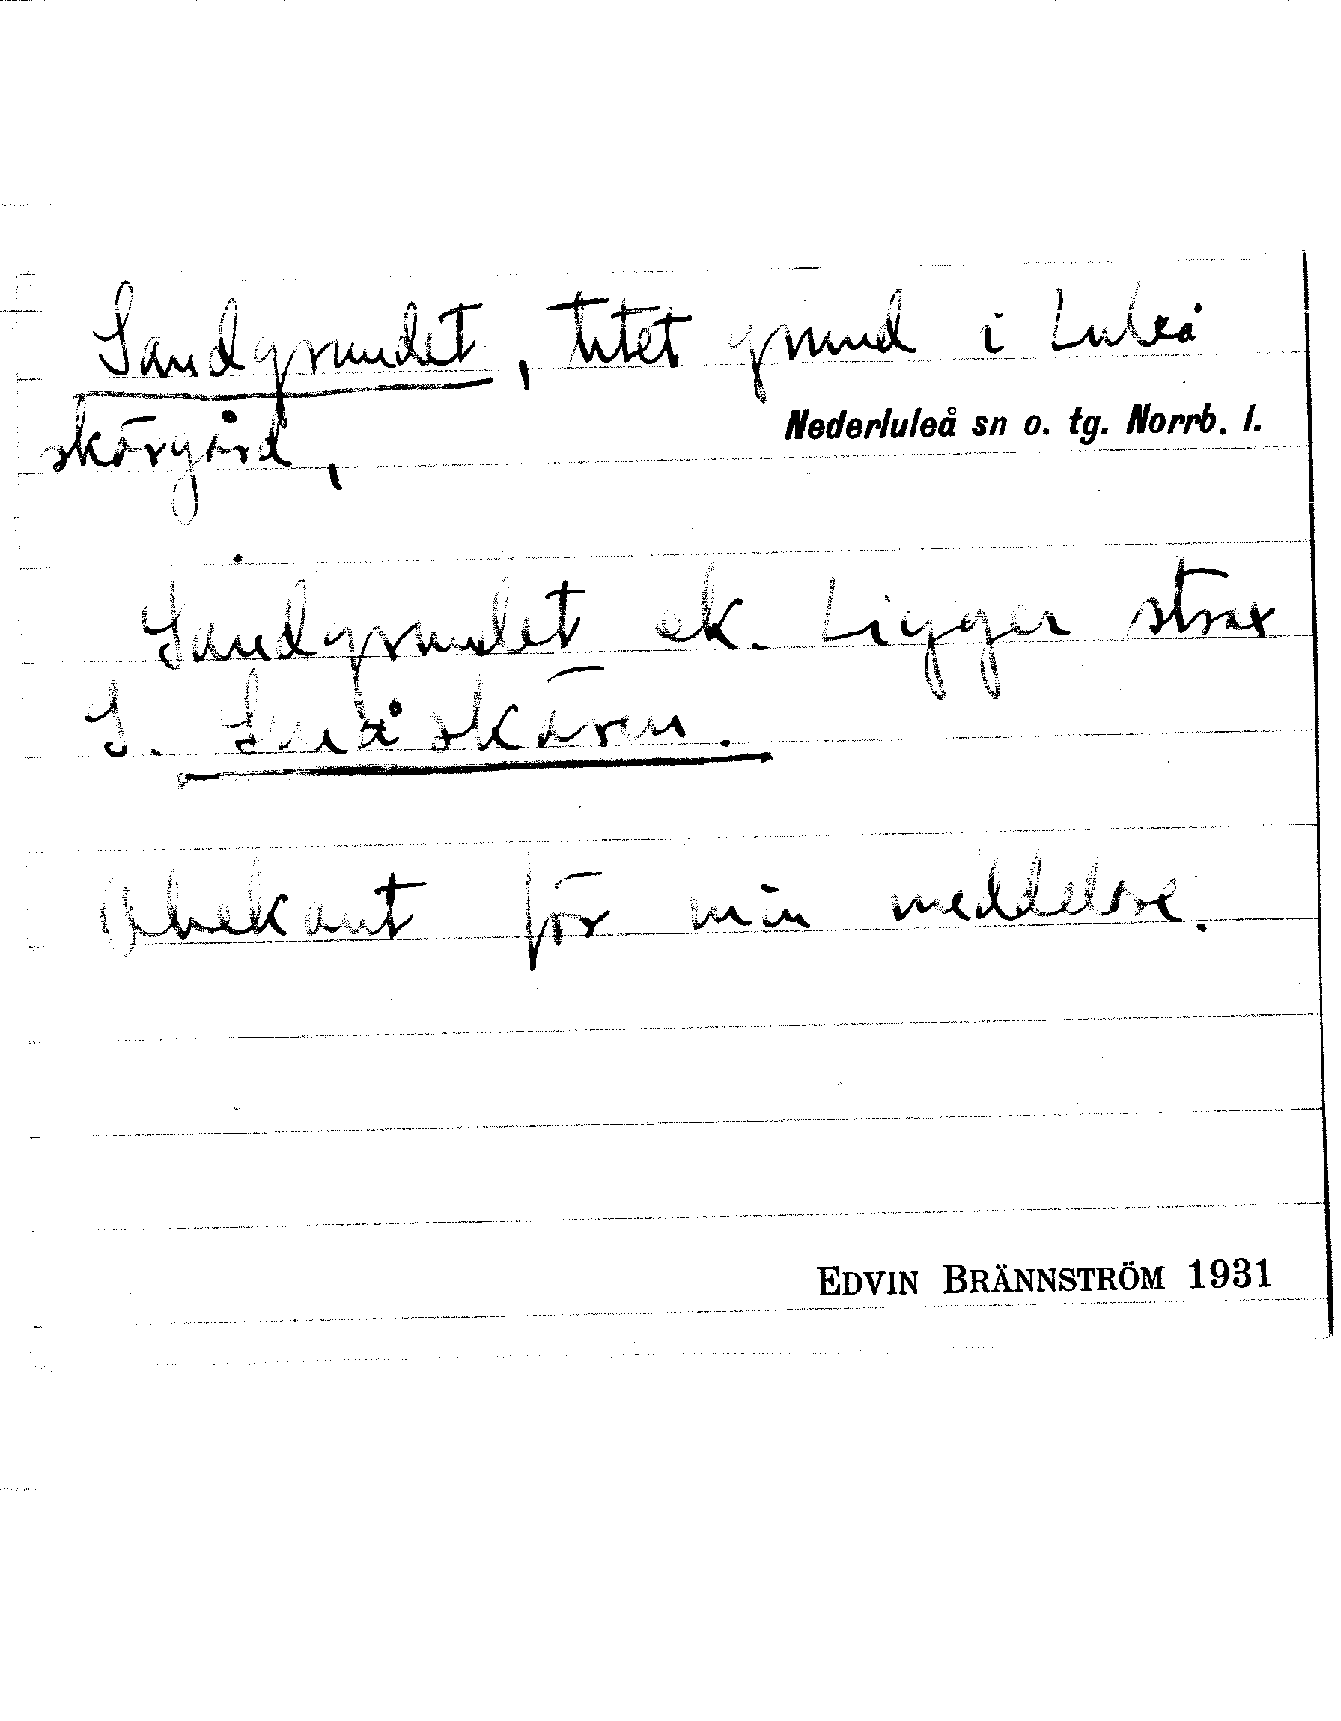 Sandgrundet, litet grund i Luleå
skärgård,
Nederluleå sn o. tg. Norrb. l.
Sandgrundet ek. Ligger strax
S. Småskären.
Obekant för min meddelare.
EDVIN BRÄNNSTRÖM 1931